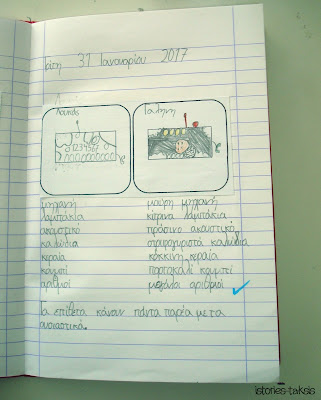 Τρίτη 31 Ιανουαρίου 2017
Λουκάς Γαλήνη
1234567
μηχανή μαύρη μηχανή
λαμπάκια κίτρινα λαμπάκια
ακουστικό πράσινο ακουστικό
καλώδια στριφογυριστά καλώδια
κεραία κόκκινη κεραία
κουμπί πορτοκαλί κουμπί
αριθμοί μεγάλοι αριθμοί
Τα επίθετα κάνουν πάντα παρέα με τα
ουσιαστικά.
istories-taksis